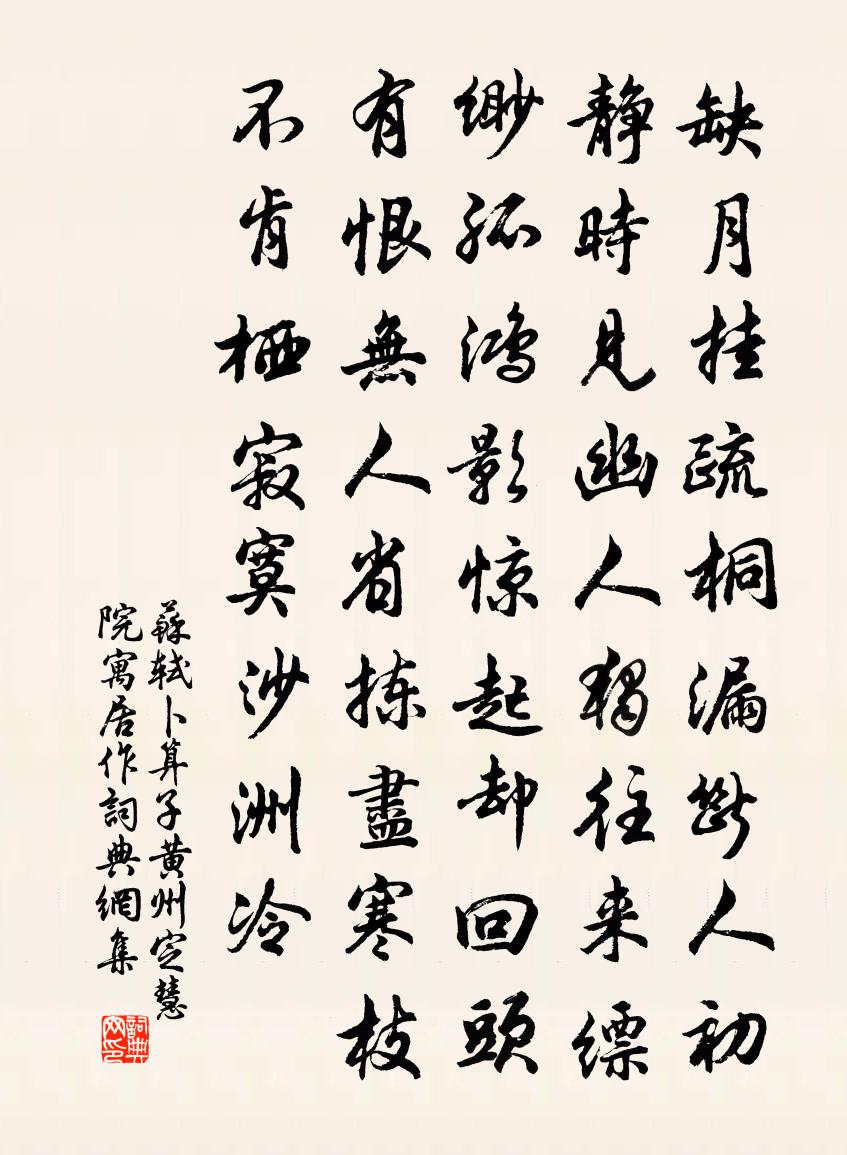 缺月挂疏桐漏斷人初
静時見幽人獨往来缥
缈孤鴻影惊起却回頭
有恨無人省拣盡寒枝
不肯栖寂寞沙洲冷
蘇軾卜算子黄州定慧
院寓居作詞典網集
詞典网印